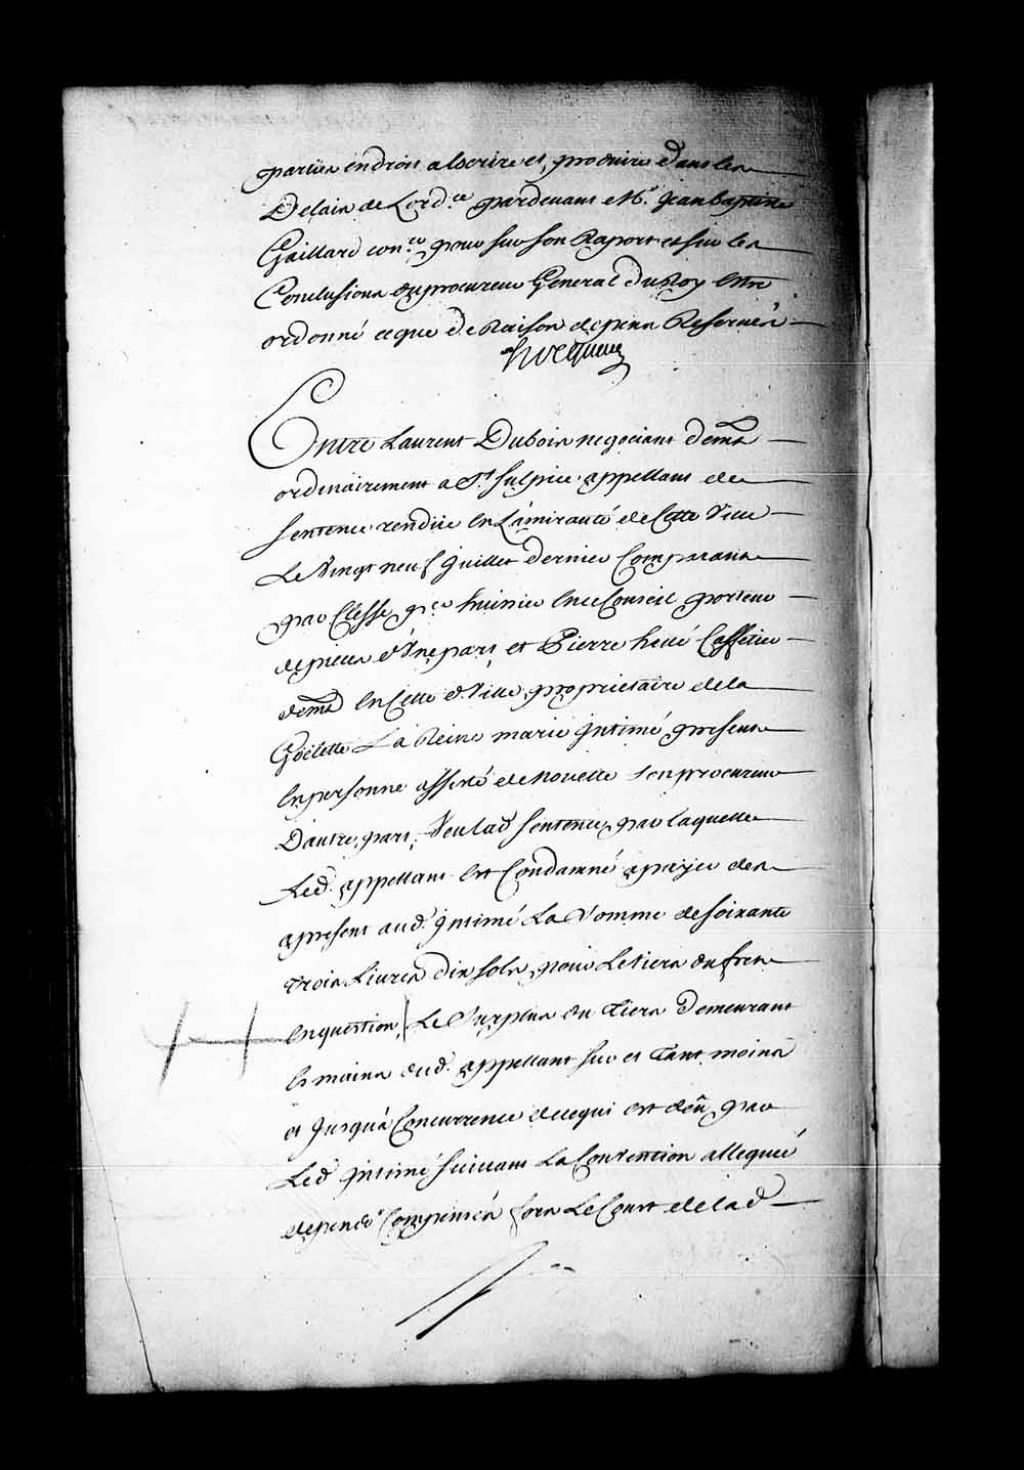 parties en droit a Escrire et produire dans les
Delais de Lord.ce pardevant Me. Jean baptiste
Gaillard con.er pour sur son Raport et sur les
Conclusions du procureur General du Roy Estre
ordonné ce que de Raison depens Reservés
hocquart
Entre Laurent Dubois negociant demt
ordinairement a St. Sulpice appellant de
sentence rendüe En L'amirauté de Cette Ville
Le Vingt neuf Juillet dernier Comparant
par Clesse p.er huissier En ce Conseil porteur
de pieces d'Une part, et Pierre hevé Caffetier
demt En Cette d. Ville, proprietaire de la
Goëlette La Reine marie Intimé present
En personne assisté de Nouette son procureur
D'autre part; Veu lad. sentence par laquelle
Led. appellant Est Condamné a payer des
a present aud. Intimé La Somme de soixante
trois Livres dix sols pour Le tiers du fret
En question, Le Surplus du tiers demeurant
Es mains dud. appellant sur et tant moins
et Jusqu'a Concurrence de ce qui est deu par
Led. Intimé suivant La Convention alleguée
depens Compensés fors Le Coust de lad.